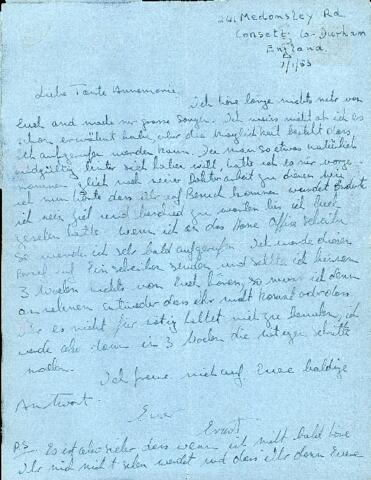 241 Medomsley Rd
Consett Co-Durham
England
1/1/53
Liebe Tante Annemarie.
Ich höre lange nichts mehr von
Euch und mache mir grosse Sorgen. Ich weiss nicht ob ich es
schon erwähnt habe aber die Möglichkeit besteht dass
ich aufgerufen werden kann. Da man so etwas natürlich
endgültig hinter sich haben will, hatte ich es mir vorge-
nommen gleich nach meiner Doktorarbeit zu dienen. Wie
ich nun hörte dass Ihr auf Besuch kommen
ich mein zu werden bis ich Euch
gesehen hätte. Wenn ich an das Home Office schreibe
So werde ich sehr bald aufgerufen. Ich werde diesen
Brief auf Einschreiben senden und sollte ich binnen
3 Wochen nichts von Euch hören, so muss ich dann
annehmen entweder dass Ihr nicht kommt oder dass
Ihr es nicht für nötig haltet mir zu schreiben, ich
werde aber dann in 3 Wochen die nötigen Schritte
machen.
Ich freue mich auf Eure baldige
Antwort.
Euer
Ernst
P.S. Es ist aber sicher dass wenn ich nicht bald höre
Ihr mich nicht sehen werdet und dass Ihr dann Eure